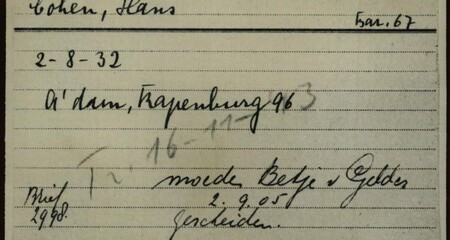 Cohen, Hans
Bar. 67
2-8-32
A'dam, Rapenburg 96
Tr. 16-11-43
moeder Betje v Gelder
2.9.05
gescheiden.
Brief
2998.